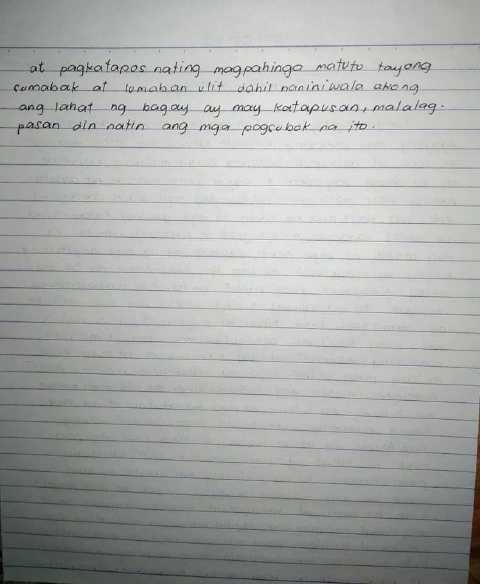 at pagkatapos nating magpahinga matuto tayong
sumabak at lumaban ulit dahil naniniwala akong
ang lahat ng bagay ay may katapusan, malalag-
pasan din natin ang mga pagsubok na ito.